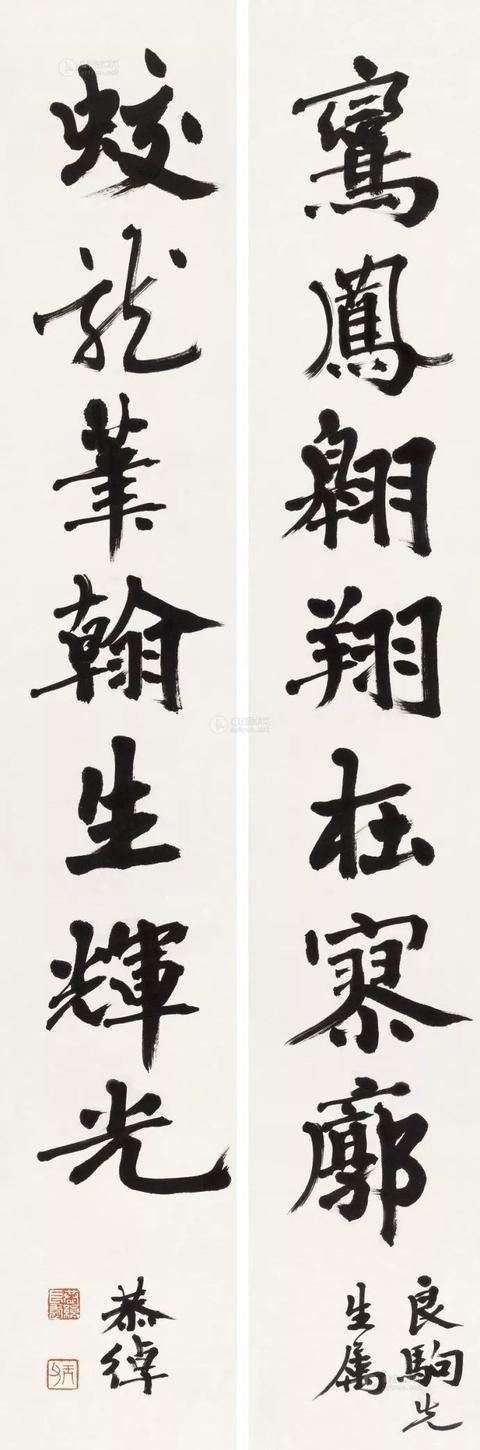 鶱鳳翱翔在寥廓
良駒先
生屬
蛟龍筆翰生輝光
恭綽